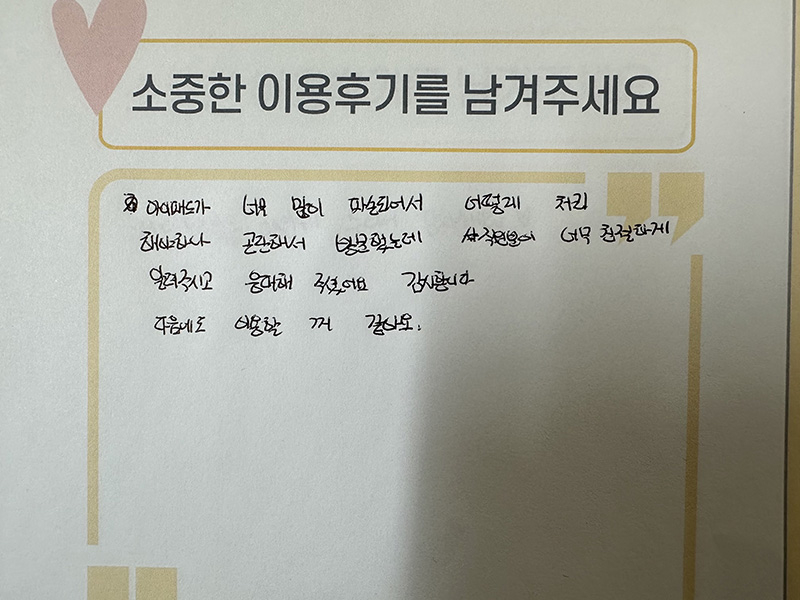 소중한 이용후기를 남겨주세요
아이패드가 너무 많이 파손되어서 어떻게 처리
해야하나 곤란해서 방문했는데 직원분이 너무 친절하게
알려주시고 응대해 주셨어요 감사합니다
다음에도 이용할 꺼 같아요.